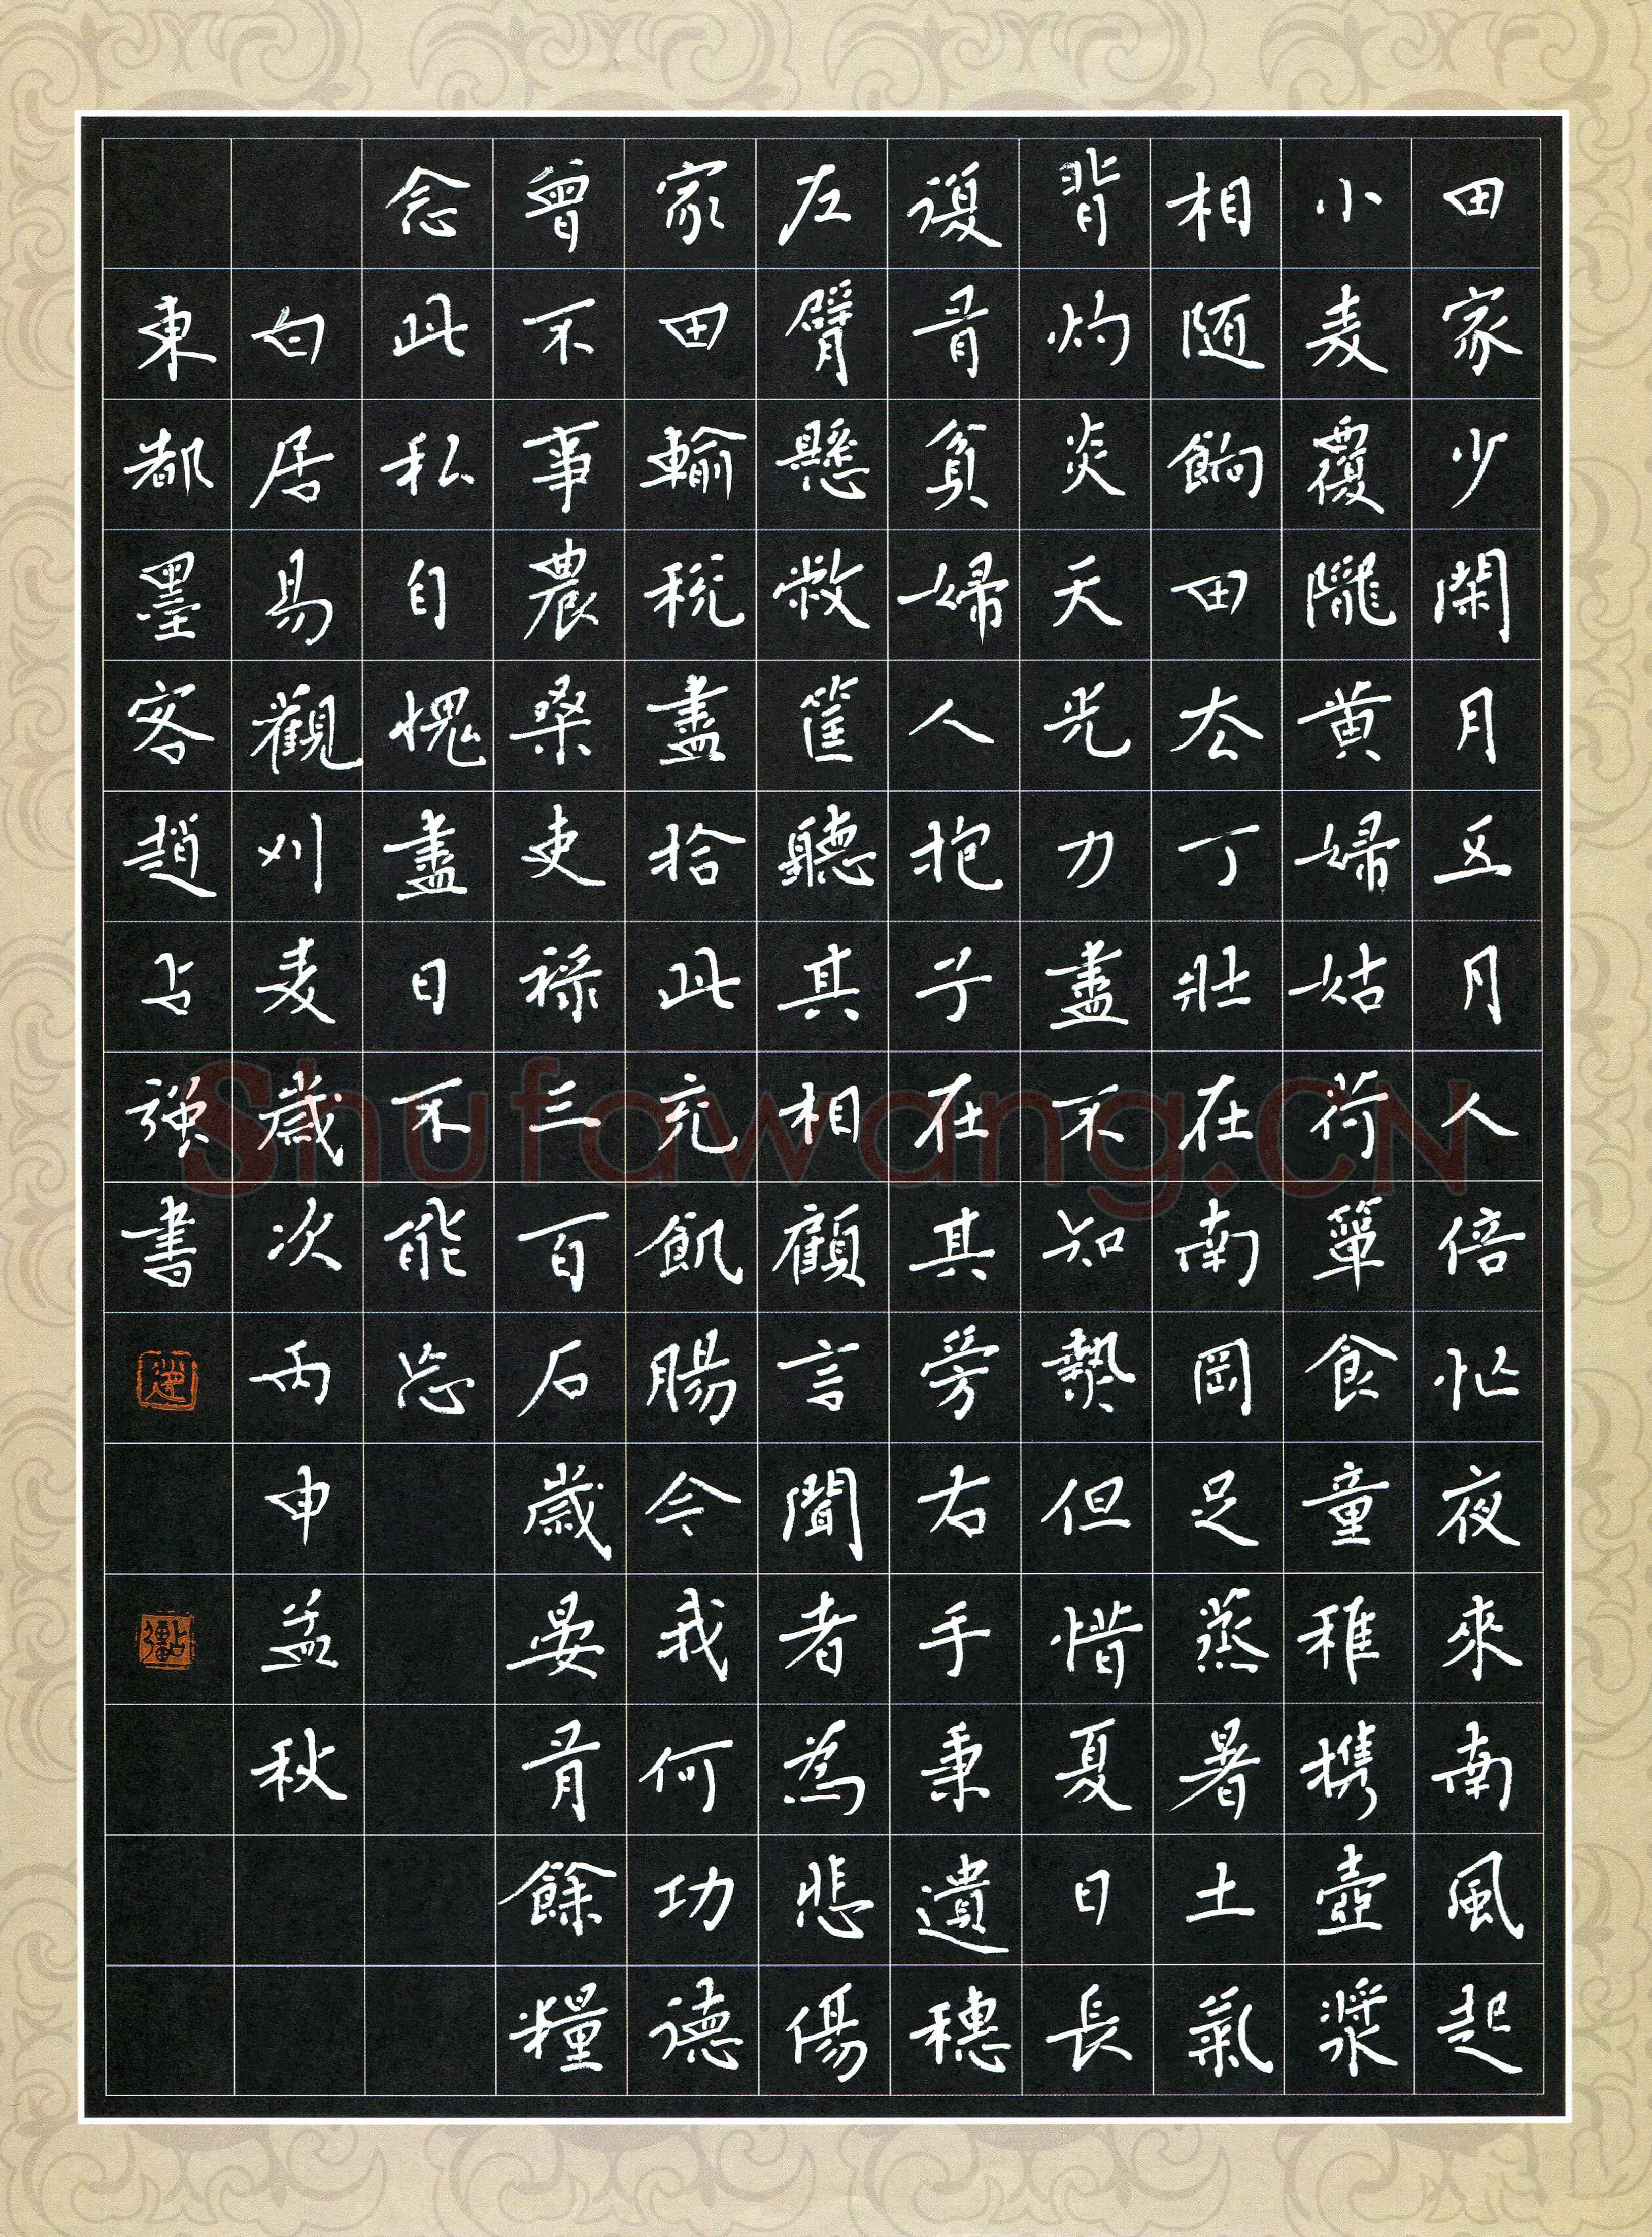 田家少閑月五月人倍忙夜來南風起
小麦覆隴黄婦姑荷簞食童稚携壺漿
相随餉田去丁壯在南岡足蒸暑土氣
背灼炎天光力盡不知熱但惜夏日長
復有貧婦人抱子在其旁右手秉遺穗
左臂懸敝筐聽其相顧言聞者為悲傷
家田輸税盡拾此充飢腸今我何功德
曾不事農桑吏禄三百石歲晏有餘糧
念此私自愧盡日不能忘
白居易觀刈麦歲次丙申孟秋
東都墨客趙占强書
趙
Shufawang.CN